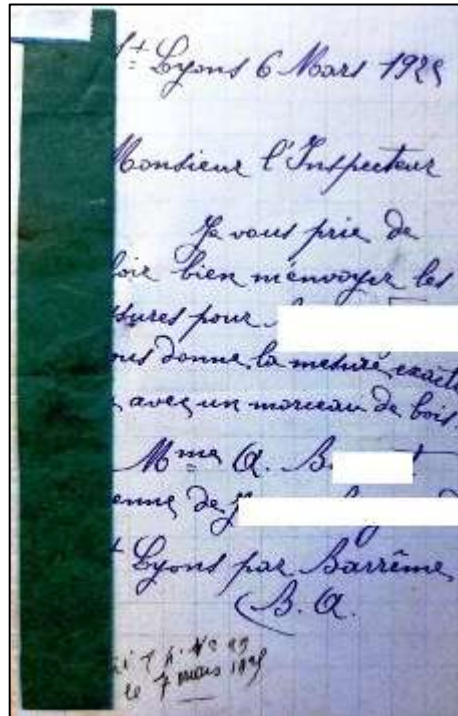 St Lyons 6 Mars 192
Monsieur l'Inspecteur
Je vous prie de
loir bien m'envoyer les
ssures pour
ous donne la mesure exacte
avec un morceau de bois.
Mme A. B
enne de
t Lyons par Barrême
(B. A.
le 7 mars